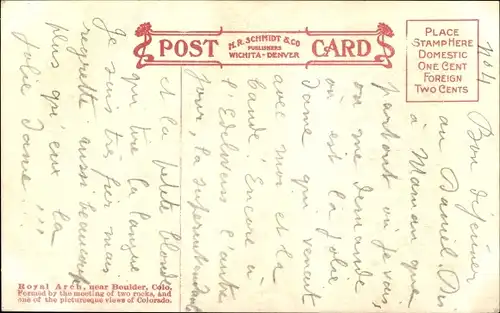 POST CARD
H.R. SCHMIDT & CO
PUBLISHERS
WICHITA - DENVER
PLACE
STAMP HERE
DOMESTIC
ONE CENT
FOREIGN
TWO CENTS
No 4
Bon déjeuner
au Daniel. Dis
à Maman que
partout où je vais,
on me demande
où est la jolie
dame qui venait
avec moi et la
bande! Encore à
l'Edelweiss l'autre
jour, la superintendante
et la petite blonde
qui tire la langue
Je suis très fier mais
regrette aussi beaucoup
plus qu'eux la
jolie dame!!!
Royal Arch, near Boulder, Colo.
Formed by the meeting of two rocks, and
one of the picturesque views of Colorado.